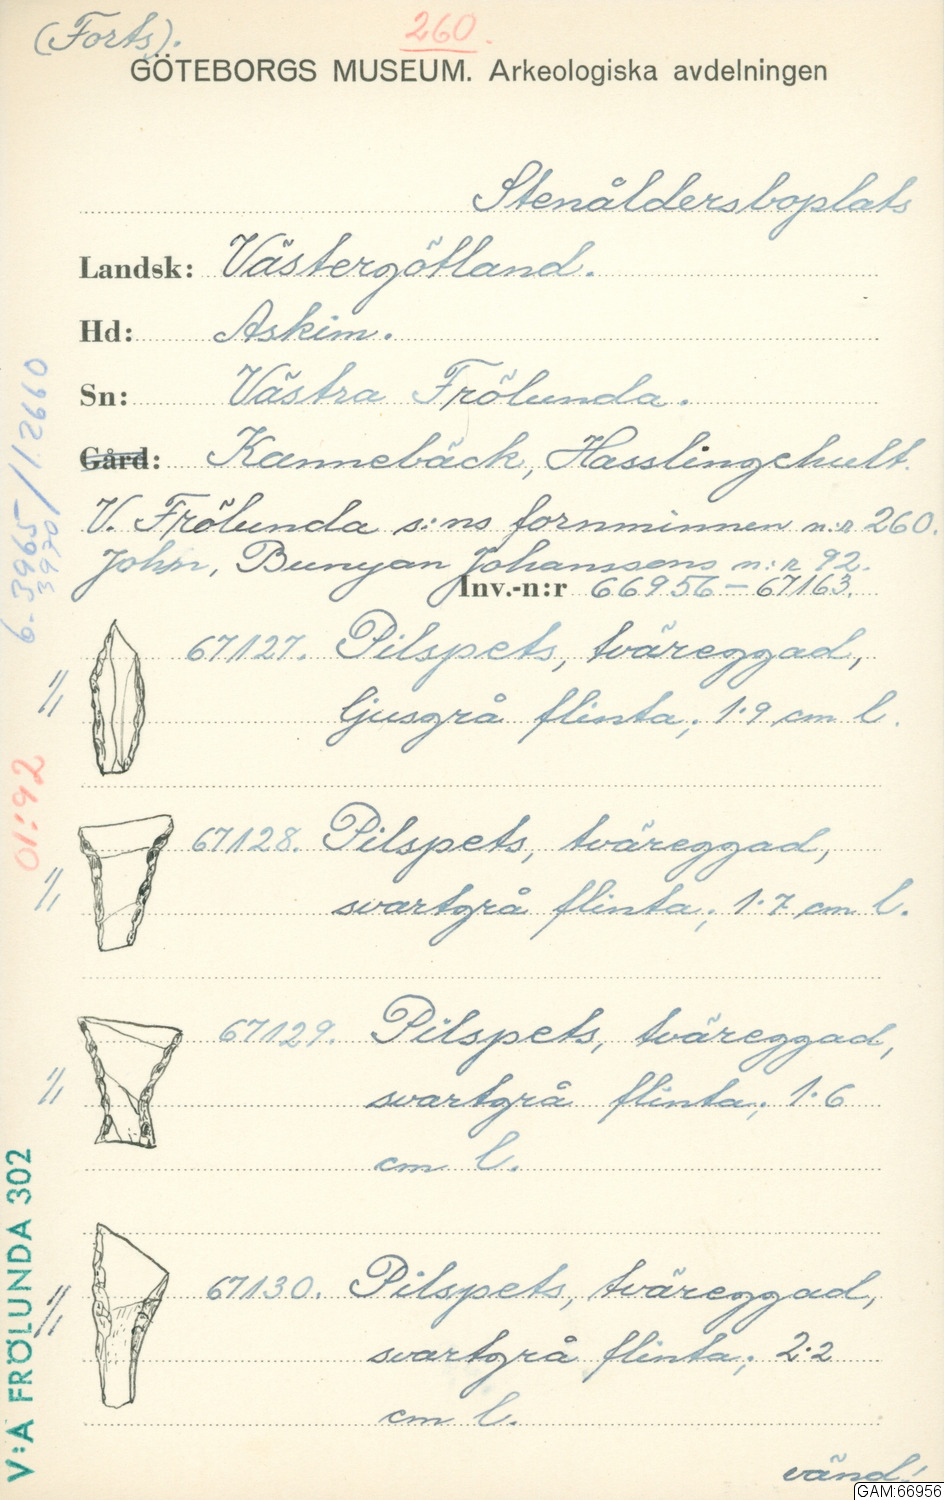 (Forts).
260.
GÖTEBORGS MUSEUM. Arkeologiska avdelningen
Stenåldersboplats
Landsk: Västergötland.
Hd: Askim.
Sn: Västra Frölunda.
Gård: Kannebäck, Hasslingehult.
V. Frölunda s:ns fornminnen n:r 260.
John, Bunyan Johanssons n:r 92.
Inv.-n:r 66956-67163.
67127. Pilspets, tväreggad,
ljusgrå flinta; 1.9 cm l.
67128. Pilspets, tväreggad,
svartgrå flinta; 1.7 cm l.
67129. Pilspets, tväreggad,
svartgrå flinta; 1.6
cm l.
67130. Pilspets, tväreggad,
svartgrå flinta; 2.2
cm l.
vänd!
6.3965/1.2660
3970
01:92
V:A FRÖLUNDA 302
GAM:66956